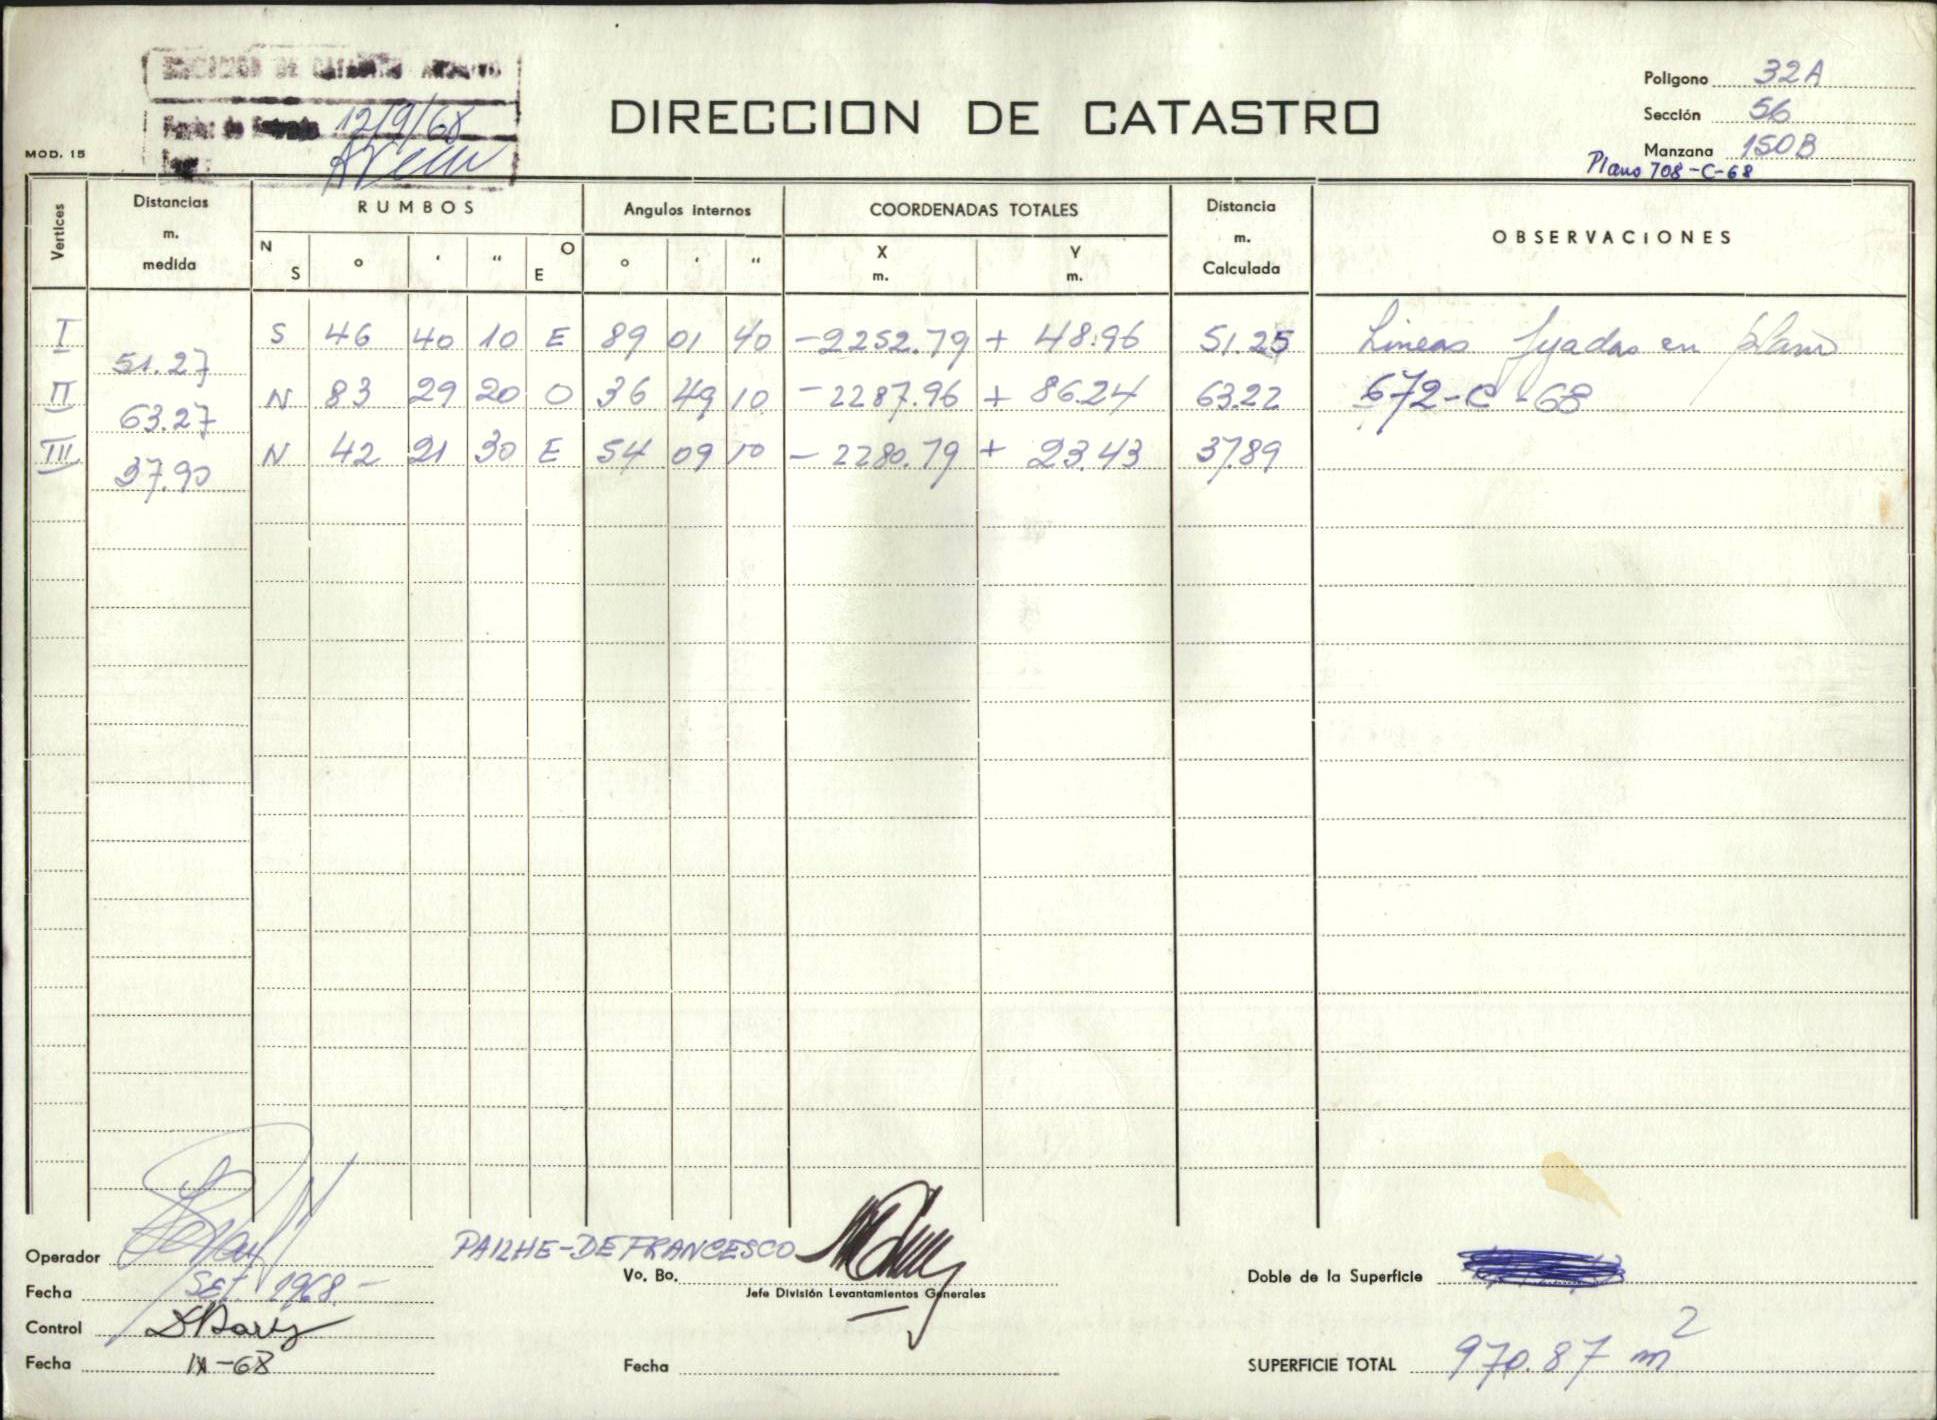 DIRECCION DE CATASTRO ARCHIVO
Fecha de Entrada 12/9/68
MOD. 15
DIRECCION DE CATASTRO
Polígono 32A
Sección 56
Manzana 150B
Plano 708-C-68
Vertices
Distancias m. medida
RUMBOS
N S ° ' " O E
Angulos internos
° ' "
COORDENADAS TOTALES
X m. Y m.
Distancia m. Calculada
OBSERVACIONES
I S 46 40 10 E 89 01 40 -2252.79 + 48.96 51.25 Lineas fijadas en plano
51.27
II N 83 29 20 O 36 49 10 -2287.96 + 86.24 63.22 672-C-68
63.27
III N 42 21 30 E 54 09 10 -2280.79 + 23.43 37.89
37.90
Operador
Fecha SET. 1968.-
Control
Fecha IX-68
PAILHE-DEFRANCESCO
Vo. Bo.
Jefe División Levantamientos Generales
Fecha
Doble de la Superficie
SUPERFICIE TOTAL 970.87 m2